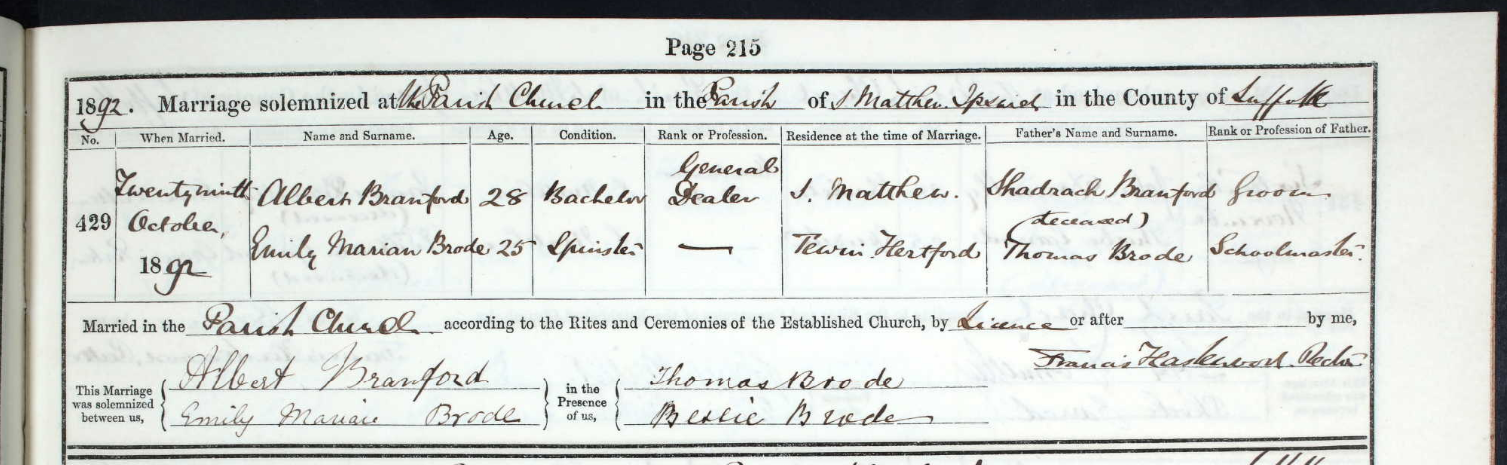 Page 215
1892. Marriage solemnized at the Parish Church in the Parish of S Matthew Ipswich in the County of Suffolk
No. When Married. Name and Surname. Age. Condition. Rank or Profession. Residence at the time of Marriage. Father's Name and Surname. Rank or Profession of Father.
429 Twentyninth October, 1892
Albert Branford 28 Bachelor General Dealer S. Matthew. Shadrach Branford (deceased) Groom
Emily Marian Brode 25 Spinster — Tewin Hertford Thomas Brode Schoolmaster.
Married in the Parish Church according to the Rites and Ceremonies of the Established Church, by Licence or after by me,
Francis Rector
This Marriage was solemnized between us, Albert Branford in the Presence of us, Thomas Brode
Emily Marian Brode Bessie Brode